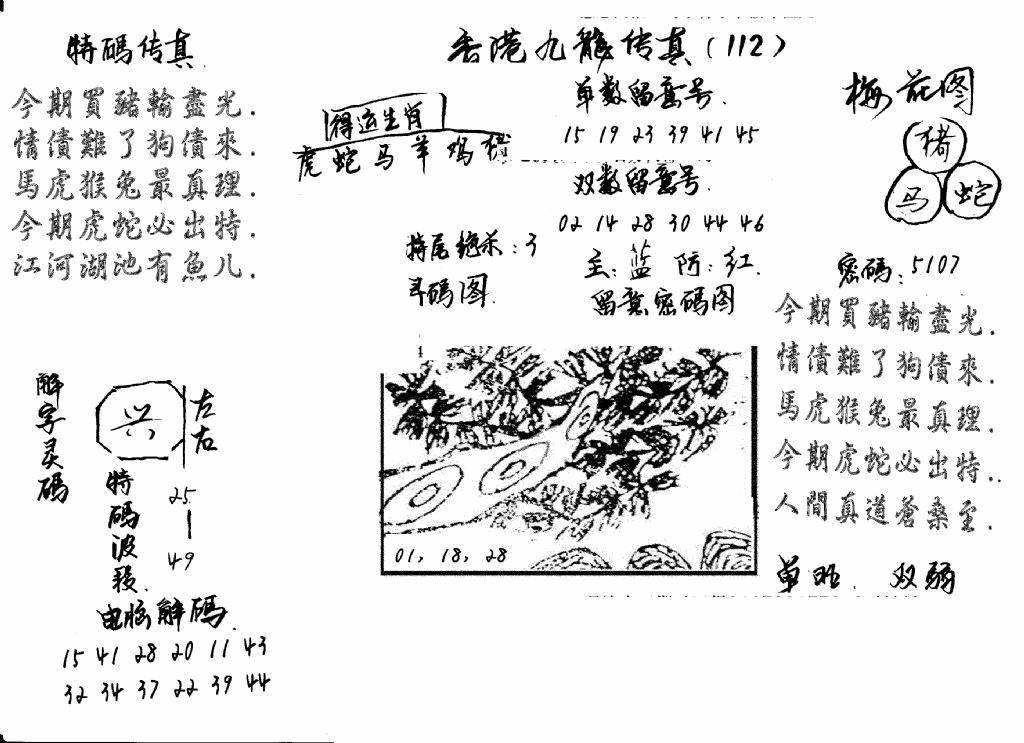 特碼传真
今期買豬輸盡光.
情債難了狗債來.
馬虎猴兔最真理.
今期虎蛇必出特.
江河湖池有魚儿.
香港九龍传真(112)
得运生肖
虎 蛇 马 羊 鸡 猪
单数留意号.
15 19 23 39 41 45
双数留意号
02 14 28 30 44 46
特尾绝杀:3
主:蓝 防:红.
寻码图.
留意密码图
梅花图
猪
马 蛇
密碼:5107
今期買豬輸盡光.
情債難了狗債來.
馬虎猴兔最真理.
今期虎蛇必出特..
人間真道蒼桑至.
单旺. 双弱
01, 18, 28
解字灵碼
兴
左右
特碼波段.
25-49
电脑解碼.
15 41 28 20 11 43
32 34 37 22 39 44